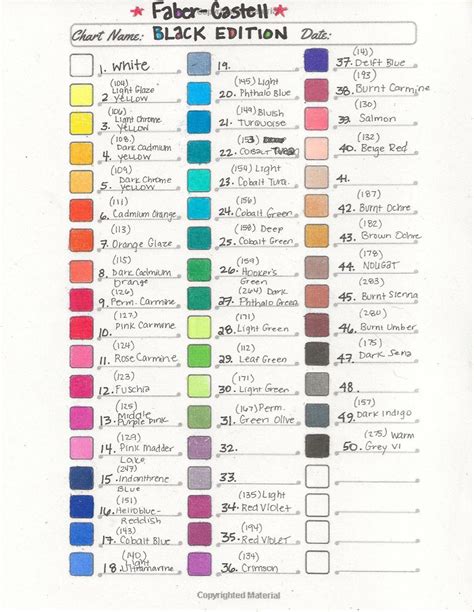 Faber-Castell
Chart Name: BLACK EDITION Date:
1. White
(104)
Light Glaze
2 yellow
(106)
Light Chrome
3. yellow
(108)
Dark Cadmium
4. yellow
(109)
Dark Chrome
5. yellow
(111)
6. Cadmium Orange
(113)
7. Orange Glaze
(115)
8. Dark Cadmium
Orange
(126)
9. Perm. Carmine
(127)
10. Pink Carmine
(124)
11. Rose Carmine
(123)
12. Fuschia
(125)
Middle
13. Purple Pink
(129)
14. Pink Madder
Lake
(247)
15. Indanthrene
Blue
(151)
16. Helioblue-
Reddish
(143)
17. Cobalt Blue
(140)
light
18. Ultramarine
19.
(145) Light
20. Phthalo Blue
(149) Bluish
21. Turquoise
(153)
22. Cobalt Turq
(154) Light
23. Cobalt Turq.
(156)
24. Cobalt Green
(158) Deep
25. Cobalt Green
(159)
26. Hooker's
Green
(264) Dark
27. Phthalo Green
(171)
28. Light Green
(112)
29. Leaf Green
(171)
30. Light Green
(167) Perm.
31. Green Olive
32.
33.
(135) Light
34. Red Violet
(194)
35. Red VIOLET
(134)
36. Crimson
(141)
37. Delft Blue
(193)
38. Burnt Carmine
(130)
39. Salmon
(132)
40. Beige Red
41.
(187)
42. Burnt Ochre
(182)
43. Brown Ochre
(178)
44. NOUGAT
(283)
45. Burnt Sienna
(280)
46. Burnt Umber
(175)
47. Dark Sepia
48.
(157)
49. Dark Indigo
(275) Warm
50. Grey VI
Copyrighted Material